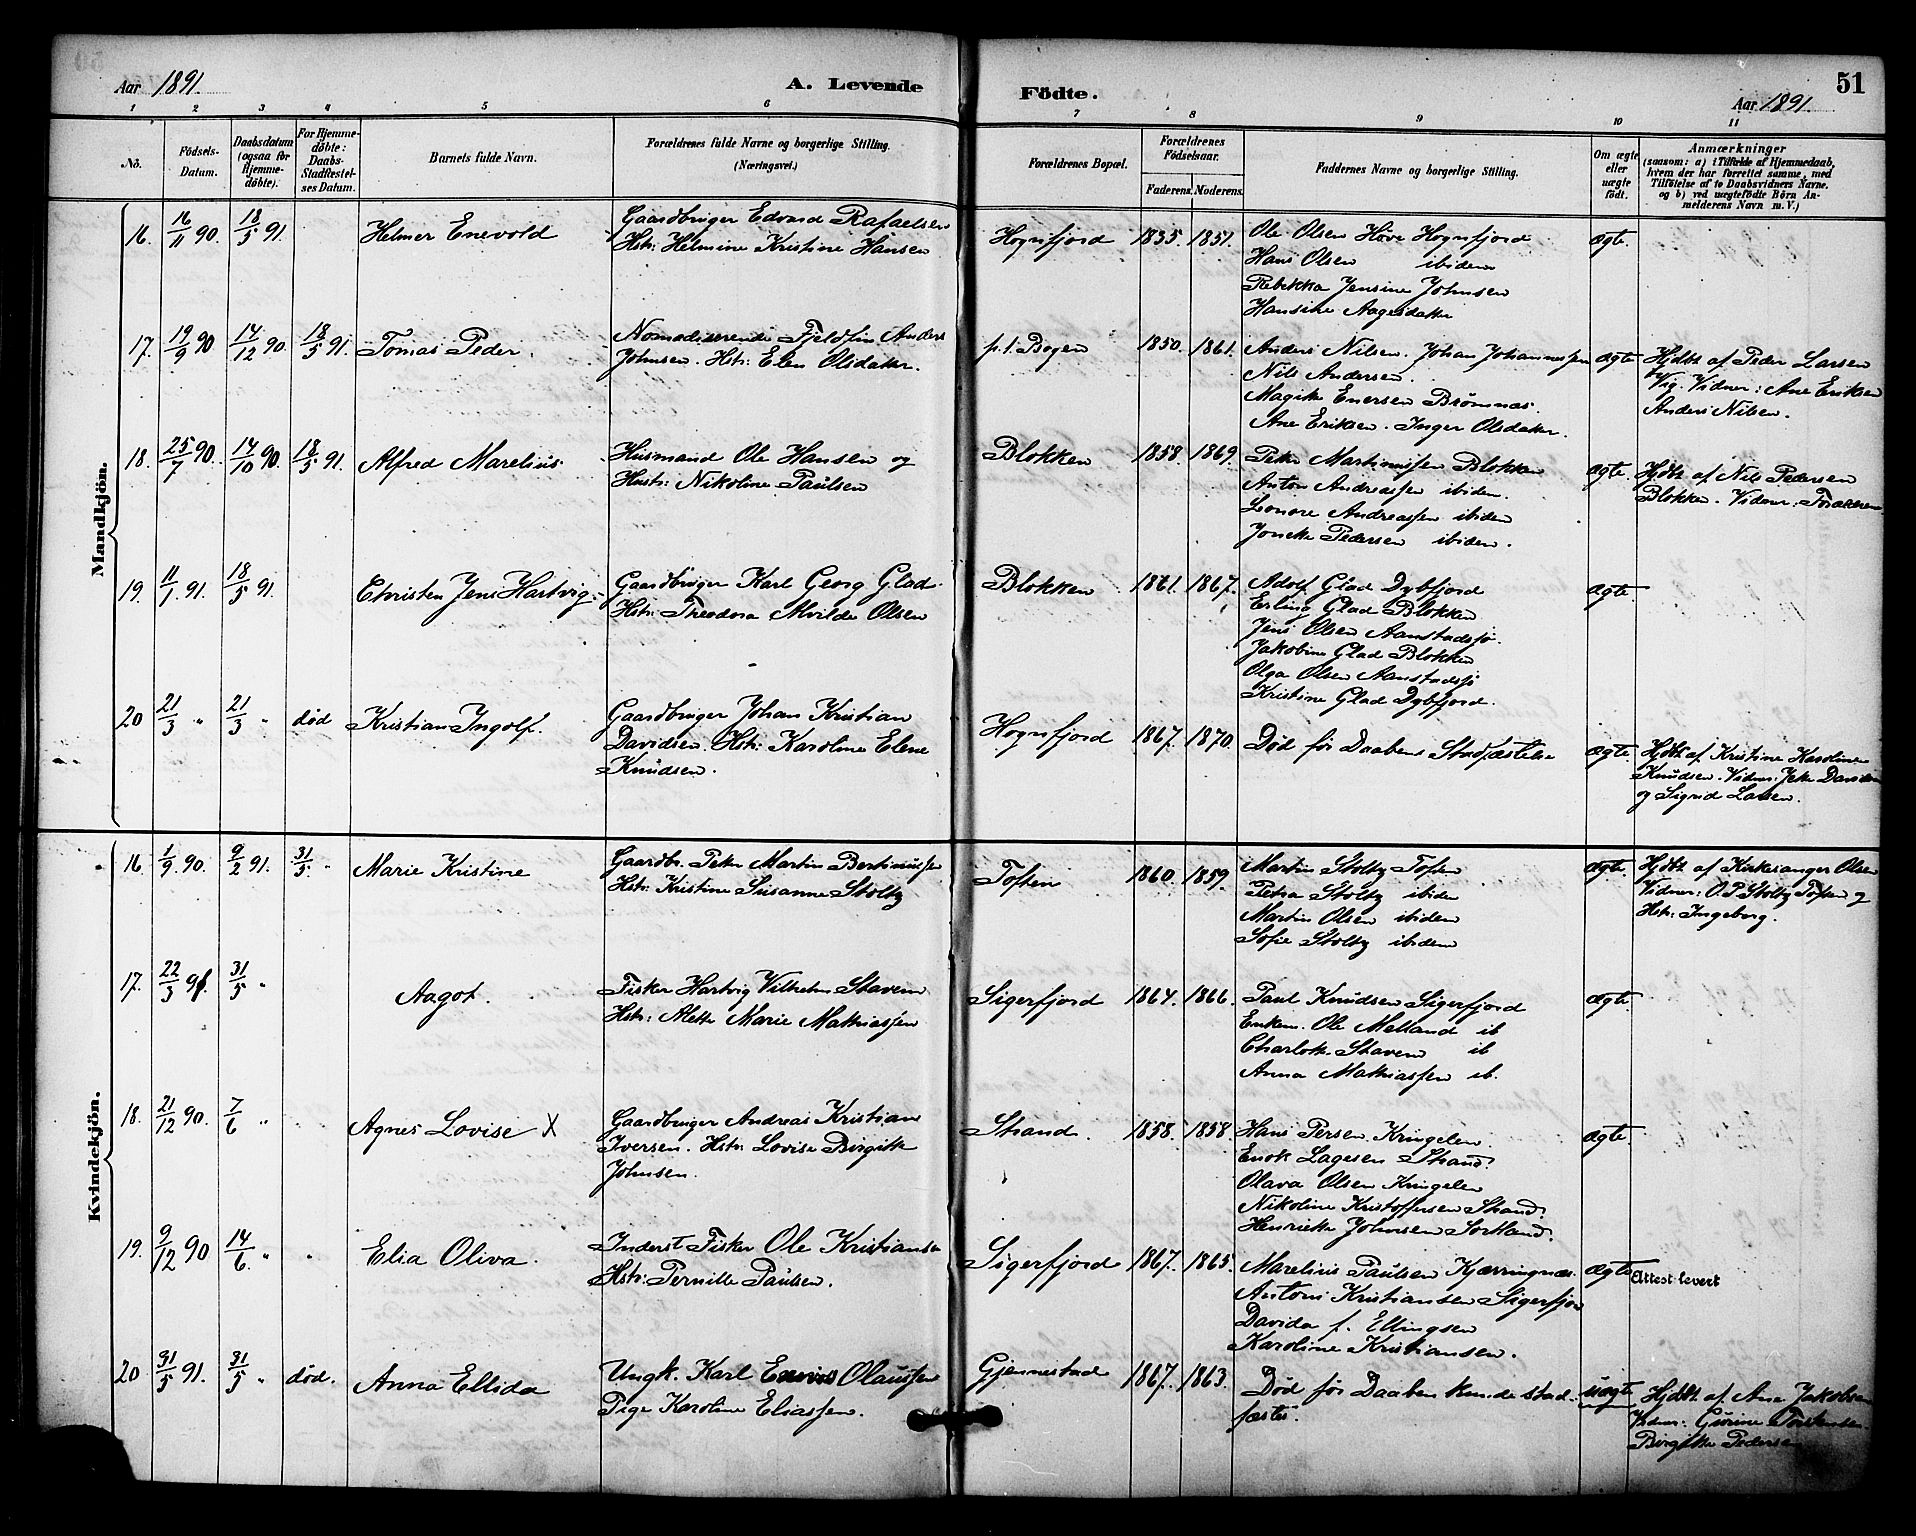 Aar 1891.
A. Levende
Födte.
51
Aar 1891.
1 2 3 4 5 6 7 8 9 10 11
No.
Födsels-
Datum.
Daabsdatum
(ogsaa for
Hjemme-
döbte).
For Hjemme-
döbte:
Daabs-
Stadfæstel-
ses Datum.
Barnets fulde Navn.
Forældrenes fulde Navne og borgerlige Stilling.
(Næringsvei.)
Forældrenes Bopæl.
Forældrenes
Födselsaar.
Faderens. Moderens.
Faddernes Navne og borgerlige Stilling.
Om ægte
eller
uægte
födt.
Anmærkninger
(saasom: a) i Tilfælde af Hjemmedaab,
hvem der har forrettet samme, med
Tilföielse af to Daabsvidners Navne.
og b) ved uægtefödte Börn An-
melderens Navn m. V.)
Mandkjön.
16. 16/11 90. 18/5 91. Helmer Enevold
Gaardbruger Edvard Rafaelsen
Hstr: Helmine Kristine Hansen
Hognfjord 1835. 1851.
Ole Olsen Höve Hognfjord
Hans Olsen ibidem
Rebekka Jensine Johnsen
Hansine Aagesdatter
ægte.
17. 19/9 90 14/12 90. 18/5 91. Tomas Peder.
Nomadiserende Fjeldfin Anders
Johnsen. Hstr: Elen Olsdatter.
p.t. Bogen 1850. 1861.
Anders Nilsen. Johan Johannessen
Nils Andersen.
Magitte Enersen Brömnæs.
Ane Eriksen. Inger Olsdatter.
ægte
Hjdbt af Peder Larsen
Vig. Vidner: Ane Eriksen
Anders Nilsen.
18. 25/7 90. 14/10 90. 18/5 91. Alfred Marelius.
Husmand Ole Hansen og
Hustr: Nikoline Paulsen
Blokken 1858. 1869.
Peter Martinussen Blokken
Anton Andreassen ibidem.
Leonore Andreassen ibidem
Jonette Pedersen ibidem.
ægte.
Hjdbt af Nils Pedersen
Blokken. Vidner: Forældrene
19. 11/1 91. 18/5 91. Christen Jens Hartvig.
Gaardbruger Karl Georg Glad.
Hstr: Theodora Alvilde Olsen
Blokken 1861. 1867.
Adolf Glad Dybfjord
Erling Glad Blokken
Jens Olsen Aanstadsjö.
Jakobine Glad Blokken
Olga Olsen Aanstadsjö
Kristine Glad Dybfjord.
ægte.
20 21/3 " 21/3 " död Kristian Ingolf.
Gaardbruger Johan Kristian
Davidsen. Hstr: Karoline Elene
Knudsen.
Hognfjord 1867. 1870.
Död för Daabens Stadfæstelse
ægte.
Hjdbt af Kristine Karoline
Knudsen. Vidner: Jette Davidsen
og Sigrid Larsen.
Kvindekjön.
16. 1/9 90. 9/2 91. 31/5 " Marie Kristine
Gaardbr. Peter Martin Bertinussen
Hstr: Kristine Susanne Stoltz
Toften 1860. 1859.
Martin Stoltz Toften
Petra Stoltz ibidem
Martin Olsen ibidem
Sofie Stoltz ibidem
ægte.
Hjdbt af Kirkesanger Olsen
Vidner: O.P. Stoltz Toften og
Hstr: Ingeborg.
17. 22/3 91. 31/5 " Aagot.
Fisker Hartvig Vilhelm Stavem
Hstr: Alette Marie Mathiassen
Sigerfjord 1864. 1866.
Paul Knudsen Sigerfjord
Enkem. Ole Melland ib
Charlotte Stavem ib
Anna Mathiassen ib.
ægte.
18. 21/12 90. 7/6 " Agnes Lovise X
Gaardbruger Andreas Kristian
Iversen. Hstr: Lovise Birgitte
Johnsen.
Strand. 1858. 1858.
Hans Persen Kringelen.
Enok Lagesen Strand.
Olava Olsen Kringelen
Nikoline Kristoffersen Strand.
Henriette Johnsen Sortland.
ægte.
19. 9/12 90 14/6 " " Elia Oliva.
Inderst Fisker Ole Kristiansen
Hstr: Pernille Paulsen.
Sigerfjord 1867. 1865.
Marelius Paulsen Kjærringnæs.
Antoni Kristiansen Sigerfjord
Davida f. Ellingsen
Karoline Kristiansen.
ægte
Attest levert
20 31/5 91. 31/5 " död. Anna Ellida
Ungk. Karl Olaussen
Pige Karoline Eliassen.
Gjennestad 1867. 1863.
Död för Daaben kunde stad-
fæstes.
uægte
Hjdbt af Ane Jakobsen
Vidner: Gurine Torstensen
Birgitte Pedersen